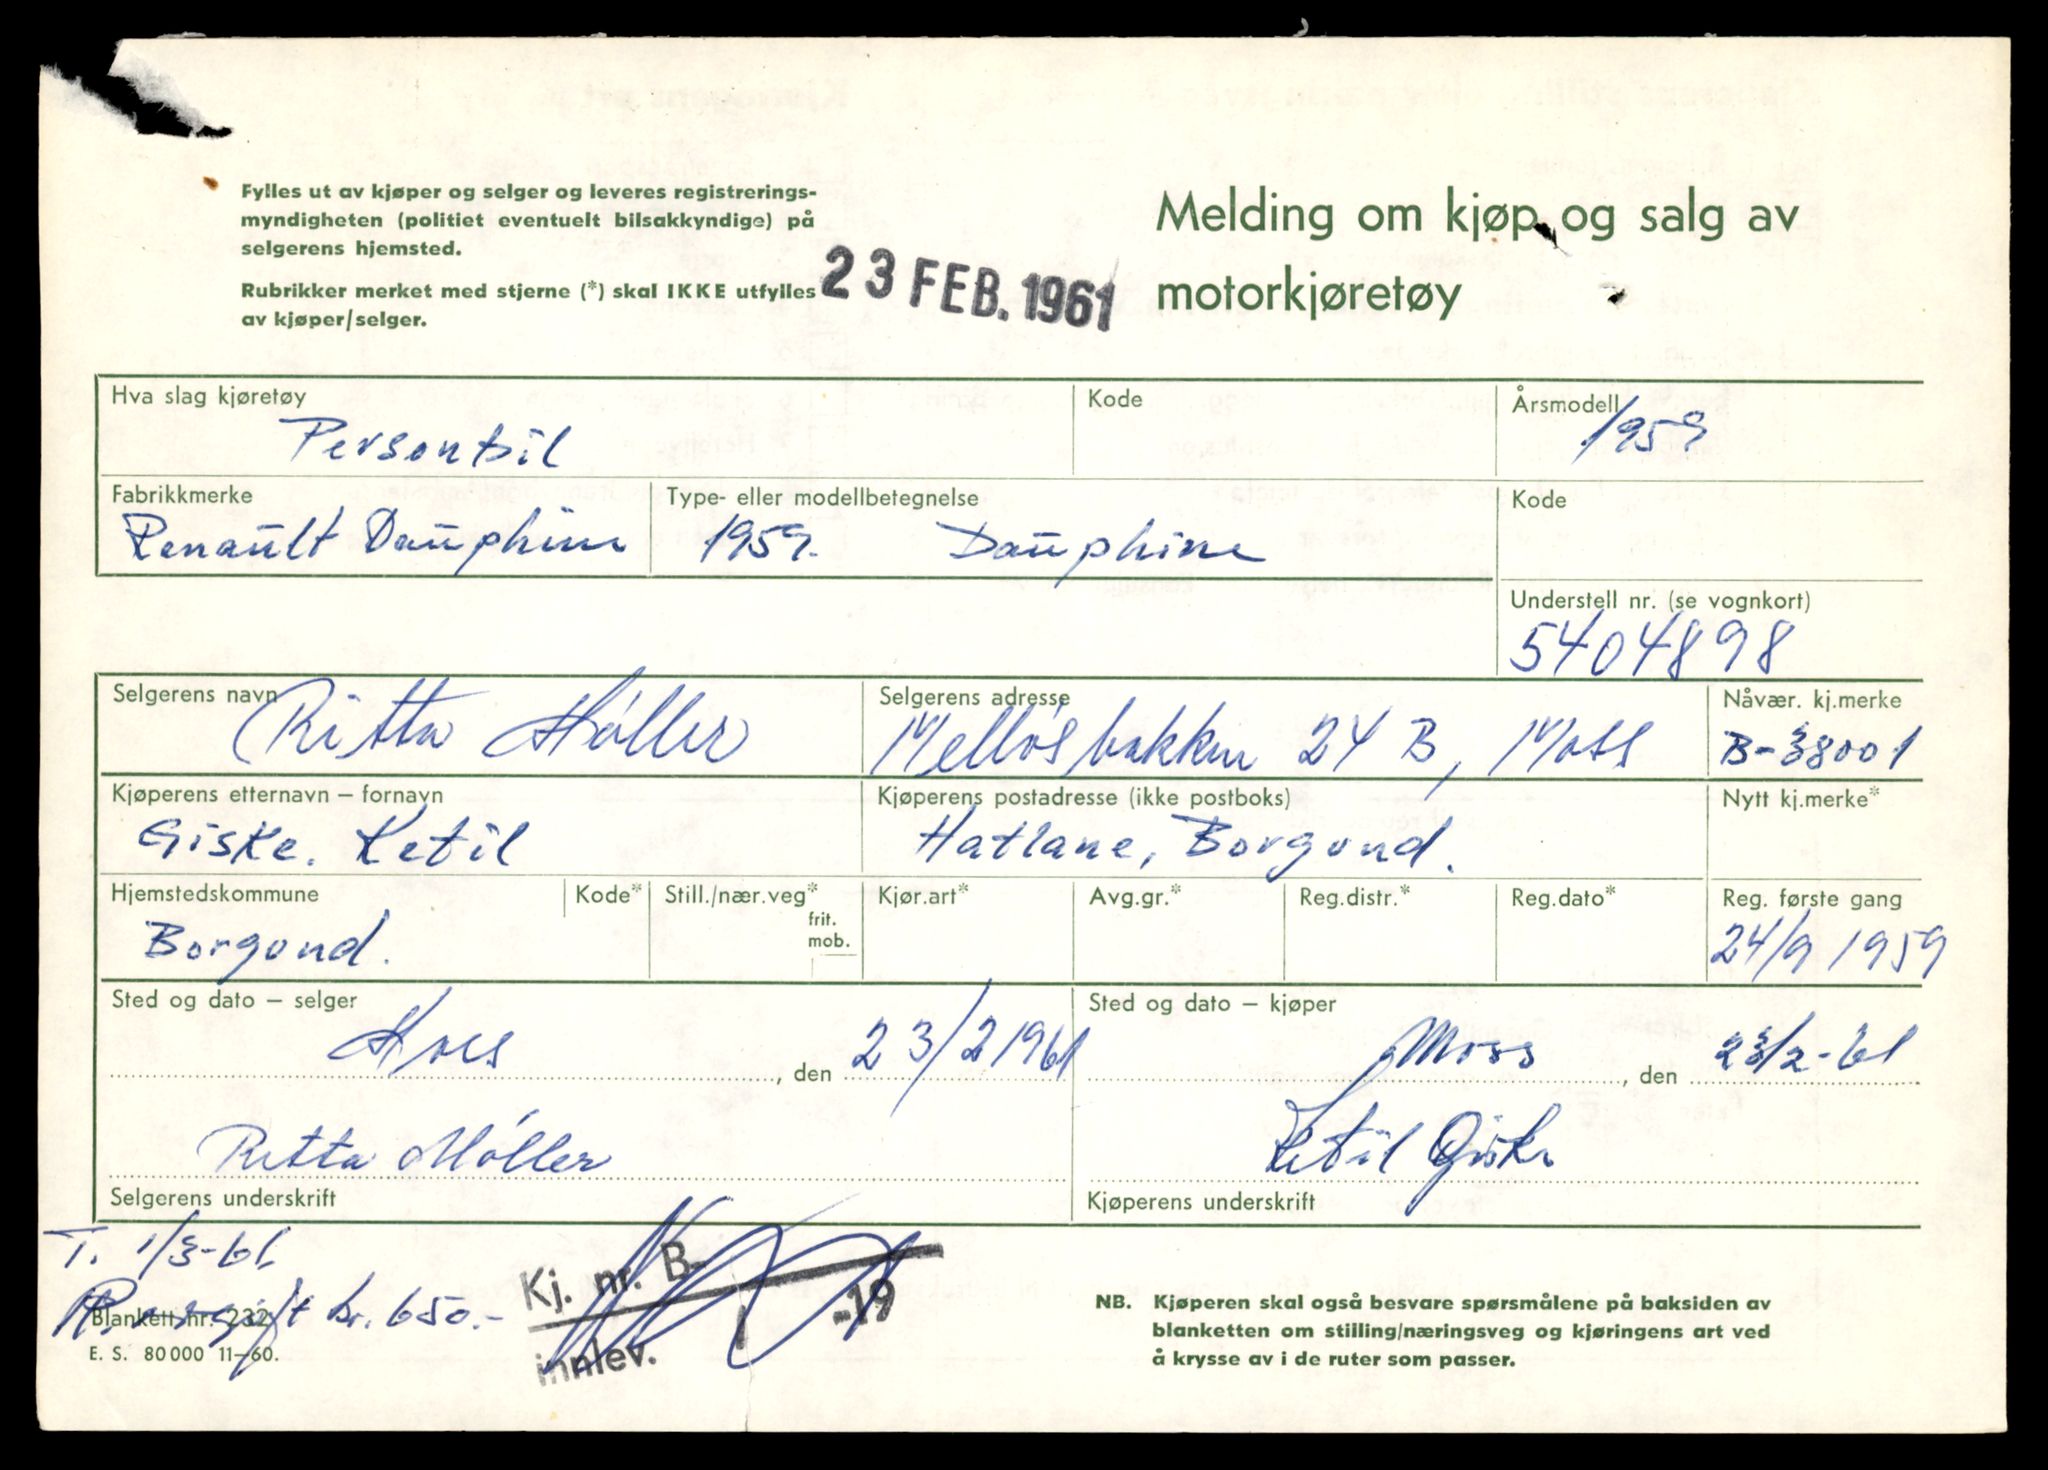 Fylles ut av kjøper og selger og leveres registrerings-
myndigheten (politiet eventuelt bilsakkyndige) på
selgerens hjemsted.
Rubrikker merket med stjerne (*) skal IKKE utfylles
av kjøper/selger.
23 FEB. 1961
Melding om kjøp og salg av
motorkjøretøy
Hva slag kjøretøy
Personbil
Kode
Årsmodell
1959
Fabrikkmerke
Renault Dauphine
Type- eller modellbetegnelse
1959. Dauphine
Kode
Understell nr. (se vognkort)
5404898
Selgerens navn
Ritta Møller
Selgerens adresse
Melløsbakken 24 B, Moss
Nåvær. kj.merke
B-38001
Kjøperens etternavn – fornavn
Giske. Ketil
Kjøperens postadresse (ikke postboks)
Hatlane, Borgund.
Nytt kj.merke*
Hjemstedskommune
Borgund.
Kode*
Still./nær.veg*
frit.
mob.
Kjør.art*
Avg.gr.*
Reg.distr.*
Reg.dato*
Reg. første gang
24/9 1959
Sted og dato – selger
Moss, den 23/2 1961
Sted og dato – kjøper
Moss, den 23/2-61
Ritta Møller
Selgerens underskrift
Ketil Giske
Kjøperens underskrift
T. 1/3-61
kr. 650.-
Blankett nr. 232
E. S. 80 000 11–60.
Kj. nr. B-
innlev. / -19
NB. Kjøperen skal også besvare spørsmålene på baksiden av
blanketten om stilling/næringsveg og kjøringens art ved
å krysse av i de ruter som passer.